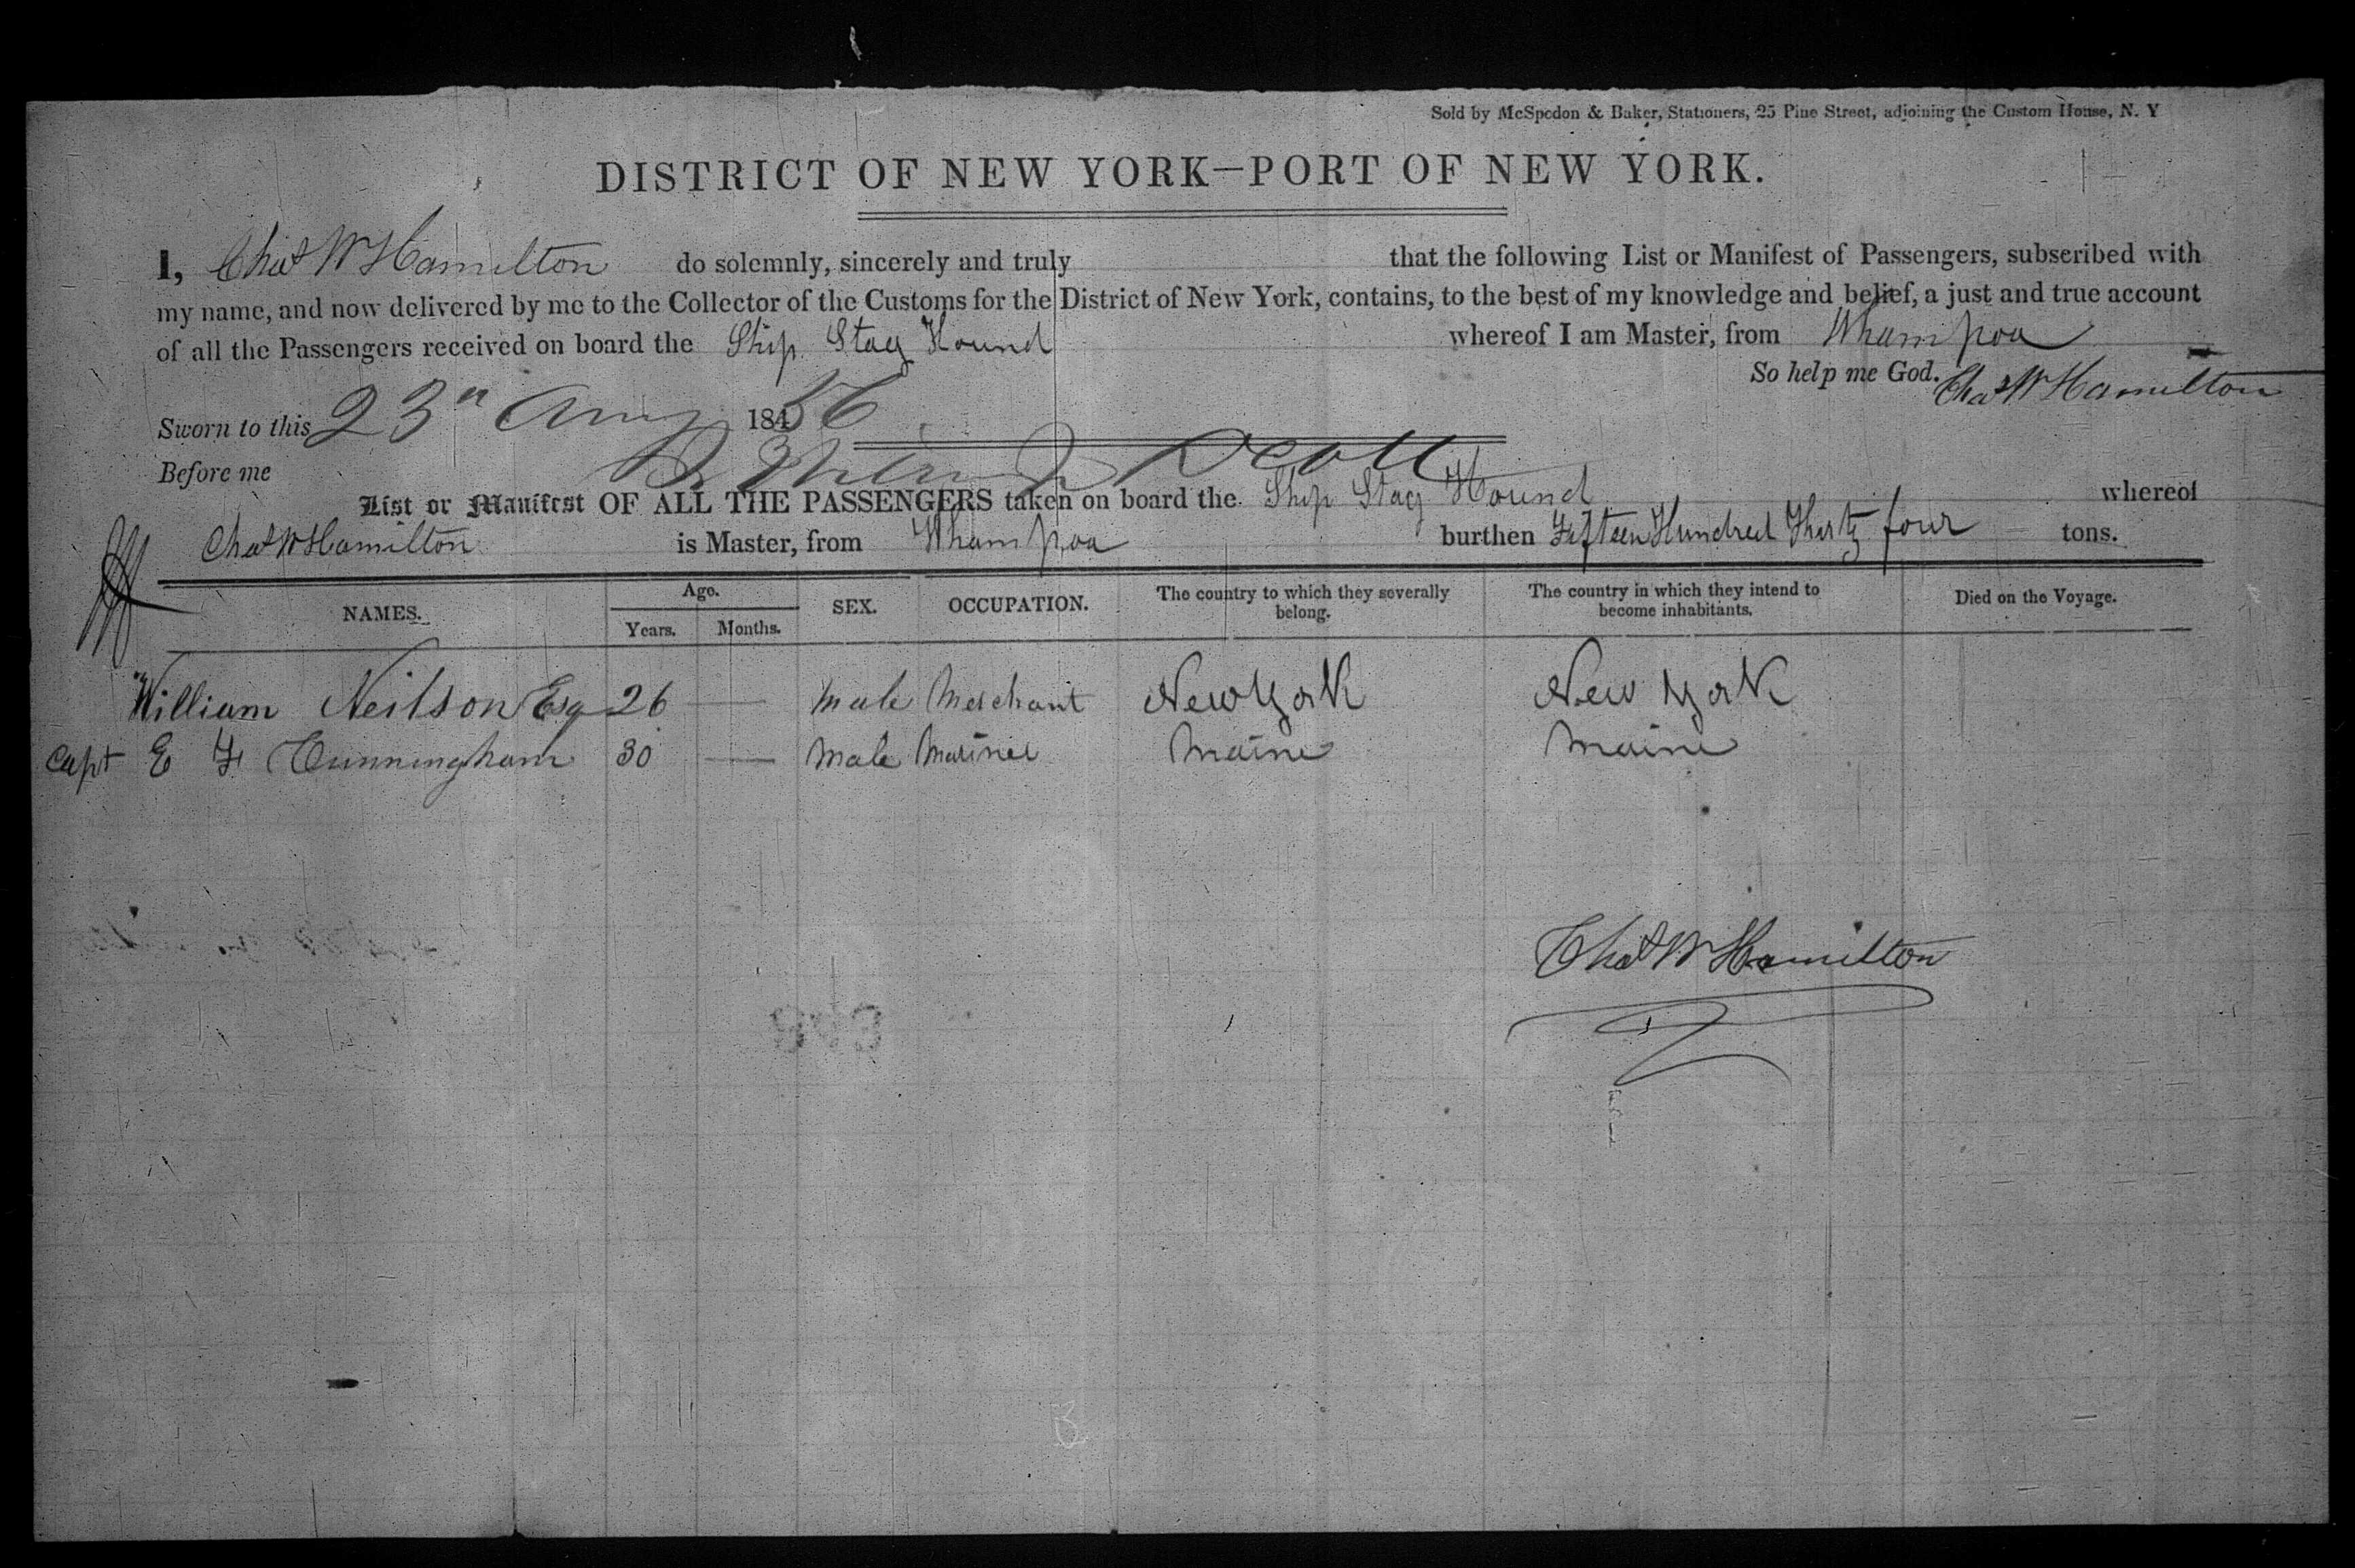 Sold by McSpedon & Baker, Stationers, 25 Pine Street, adjoining the Custom House, N. Y
DISTRICT OF NEW YORK—PORT OF NEW YORK.
I, Chas W Hamilton do solemnly, sincerely and truly that the following List or Manifest of Passengers, subscribed with
my name, and now delivered by me to the Collector of the Customs for the District of New York, contains, to the best of my knowledge and belief, a just and true account
of all the Passengers received on board the Ship Stag Hound whereof I am Master, from Whampoa
So help me God. Chas W Hamilton
Sworn to this 23 Aug 1856
Before me
List or Manifest OF ALL THE PASSENGERS taken on board the Ship Stag Hound whereof
Chas W Hamilton is Master, from Whampoa burthen Fifteen Hundred Thirty four tons.
NAMES. Age. Years. Months. SEX. OCCUPATION. The country to which they severally belong. The country in which they intend to become inhabitants. Died on the Voyage.
William Neilson Esq 26 — male Merchant New York New York
Capt E F Cunningham 30 — Male Mariner Maine Maine
Chas W Hamilton